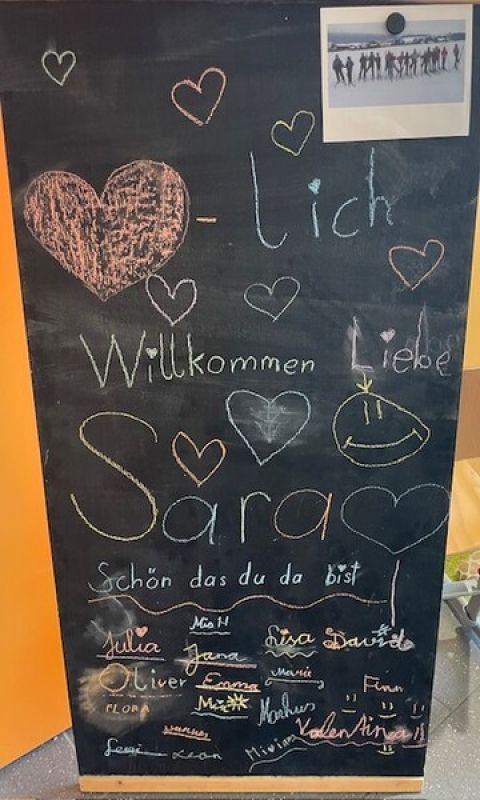 - lich
Willkommen Liebe
Sara
Schön das du da bist
Mia H
Julia Lisa David
Jana
Oliver Emma Marie Finn
FLORA Markus
Valentina
Leon Miriam